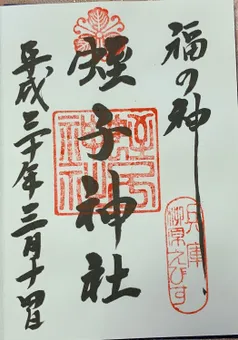 福の神
蛭子神社
平成三十年三月十四日
兵庫
柳原えびす